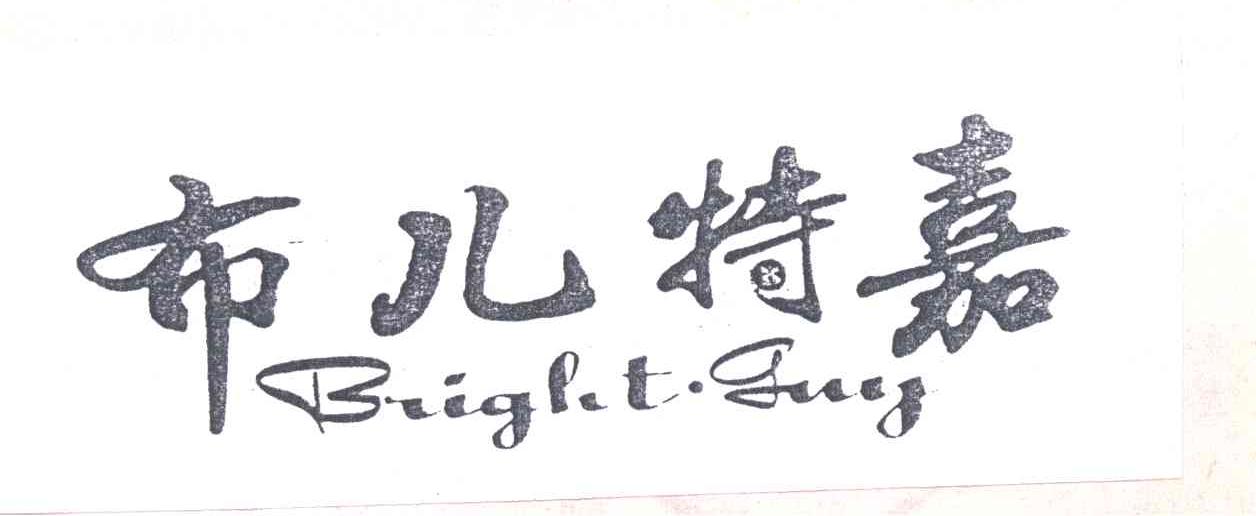 布儿特嘉
Bright·Guy